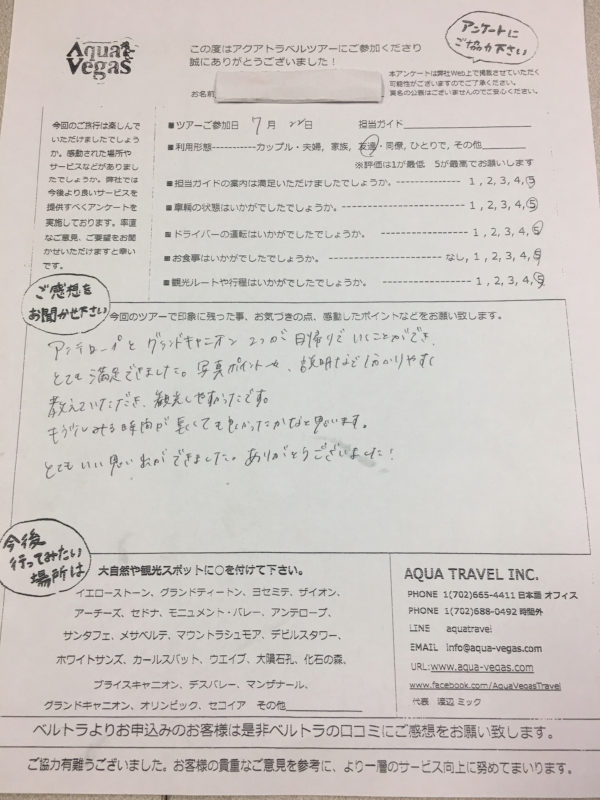 Aqua
Vegas
この度はアクアトラベルツアーにご参加くださり
誠にありがとうございました！
アンケートに
ご協力下さい
本アンケートは弊社Web上で掲載させていただく
可能性がございますのでご了承ください。
実名の公表はございませんのでご安心ください。
お名前
今回のご旅行は楽しんで
いただけましたでしょう
か。感動された場所や
サービスなどがありまし
たでしょうか。弊社では
今後より良いサービスを
提供すべくアンケートを
実施しております。率直
なご意見、ご要望をお聞
かせいただけますと幸い
です。
■ツアーご参加日 7月 22日 担当ガイド
■利用形態-----------カップル・夫婦, 家族, 友達・同僚, ひとりで, その他
※評価は1が最低 5が最高でお願いします
■担当ガイドの案内は満足いただけましたでしょうか。---------------- 1, 2, 3, 4, 5
■車輌の状態はいかがでしたでしょうか。------------------ 1, 2, 3, 4, 5
■ドライバーの運転はいかがでしたでしょうか。 ------------------ 1, 2, 3, 4, 5
■お食事はいかがでしたでしょうか。 ------------------なし, 1, 2, 3, 4, 5
■観光ルートや行程はいかがでしたでしょうか。------------------ 1, 2, 3, 4, 5
ご感想を
お聞かせ下さい
今回のツアーで印象に残った事、お気づきの点、感動したポイントなどをお願い致します。
アンテロープとグランドキャニオン 2つが日帰りでいくことができ、
とても満足できました。写真ポイントや、説明など分かりやすく
教えていただき、観光しやすかったです。
もう少しみる時間が長くても良かったかなと思います。
とてもいい思い出ができました。ありがとうございました！
今後
行ってみたい
場所は
大自然や観光スポットに○を付けて下さい。
イエローストーン、グランドティートン、ヨセミテ、ザイオン、
アーチーズ、セドナ、モニュメント・バレー、アンテロープ、
サンタフェ、メサベルデ、マウントラシュモア、デビルスタワー、
ホワイトサンズ、カールスバット、ウエイブ、大隕石孔、化石の森、
ブライスキャニオン、デスバレー、マンザナール、
グランドキャニオン、オリンピック、セコイア その他
AQUA TRAVEL INC.
PHONE 1(702)665-4411 日本語 オフィス
PHONE 1(702)688-0492 時間外
LINE aquatravel
EMAIL info@aqua-vegas.com
URL:www.aqua-vegas.com
www.facebook.com/AquaVegasTravel
代表 渡辺 ミック
ベルトラよりお申込みのお客様は是非ベルトラの口コミにご感想をお願い致します。
ご協力有難うございました。お客様の貴重なご意見を参考に、より一層のサービス向上に努めてまいります。